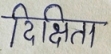 दिक्षिता